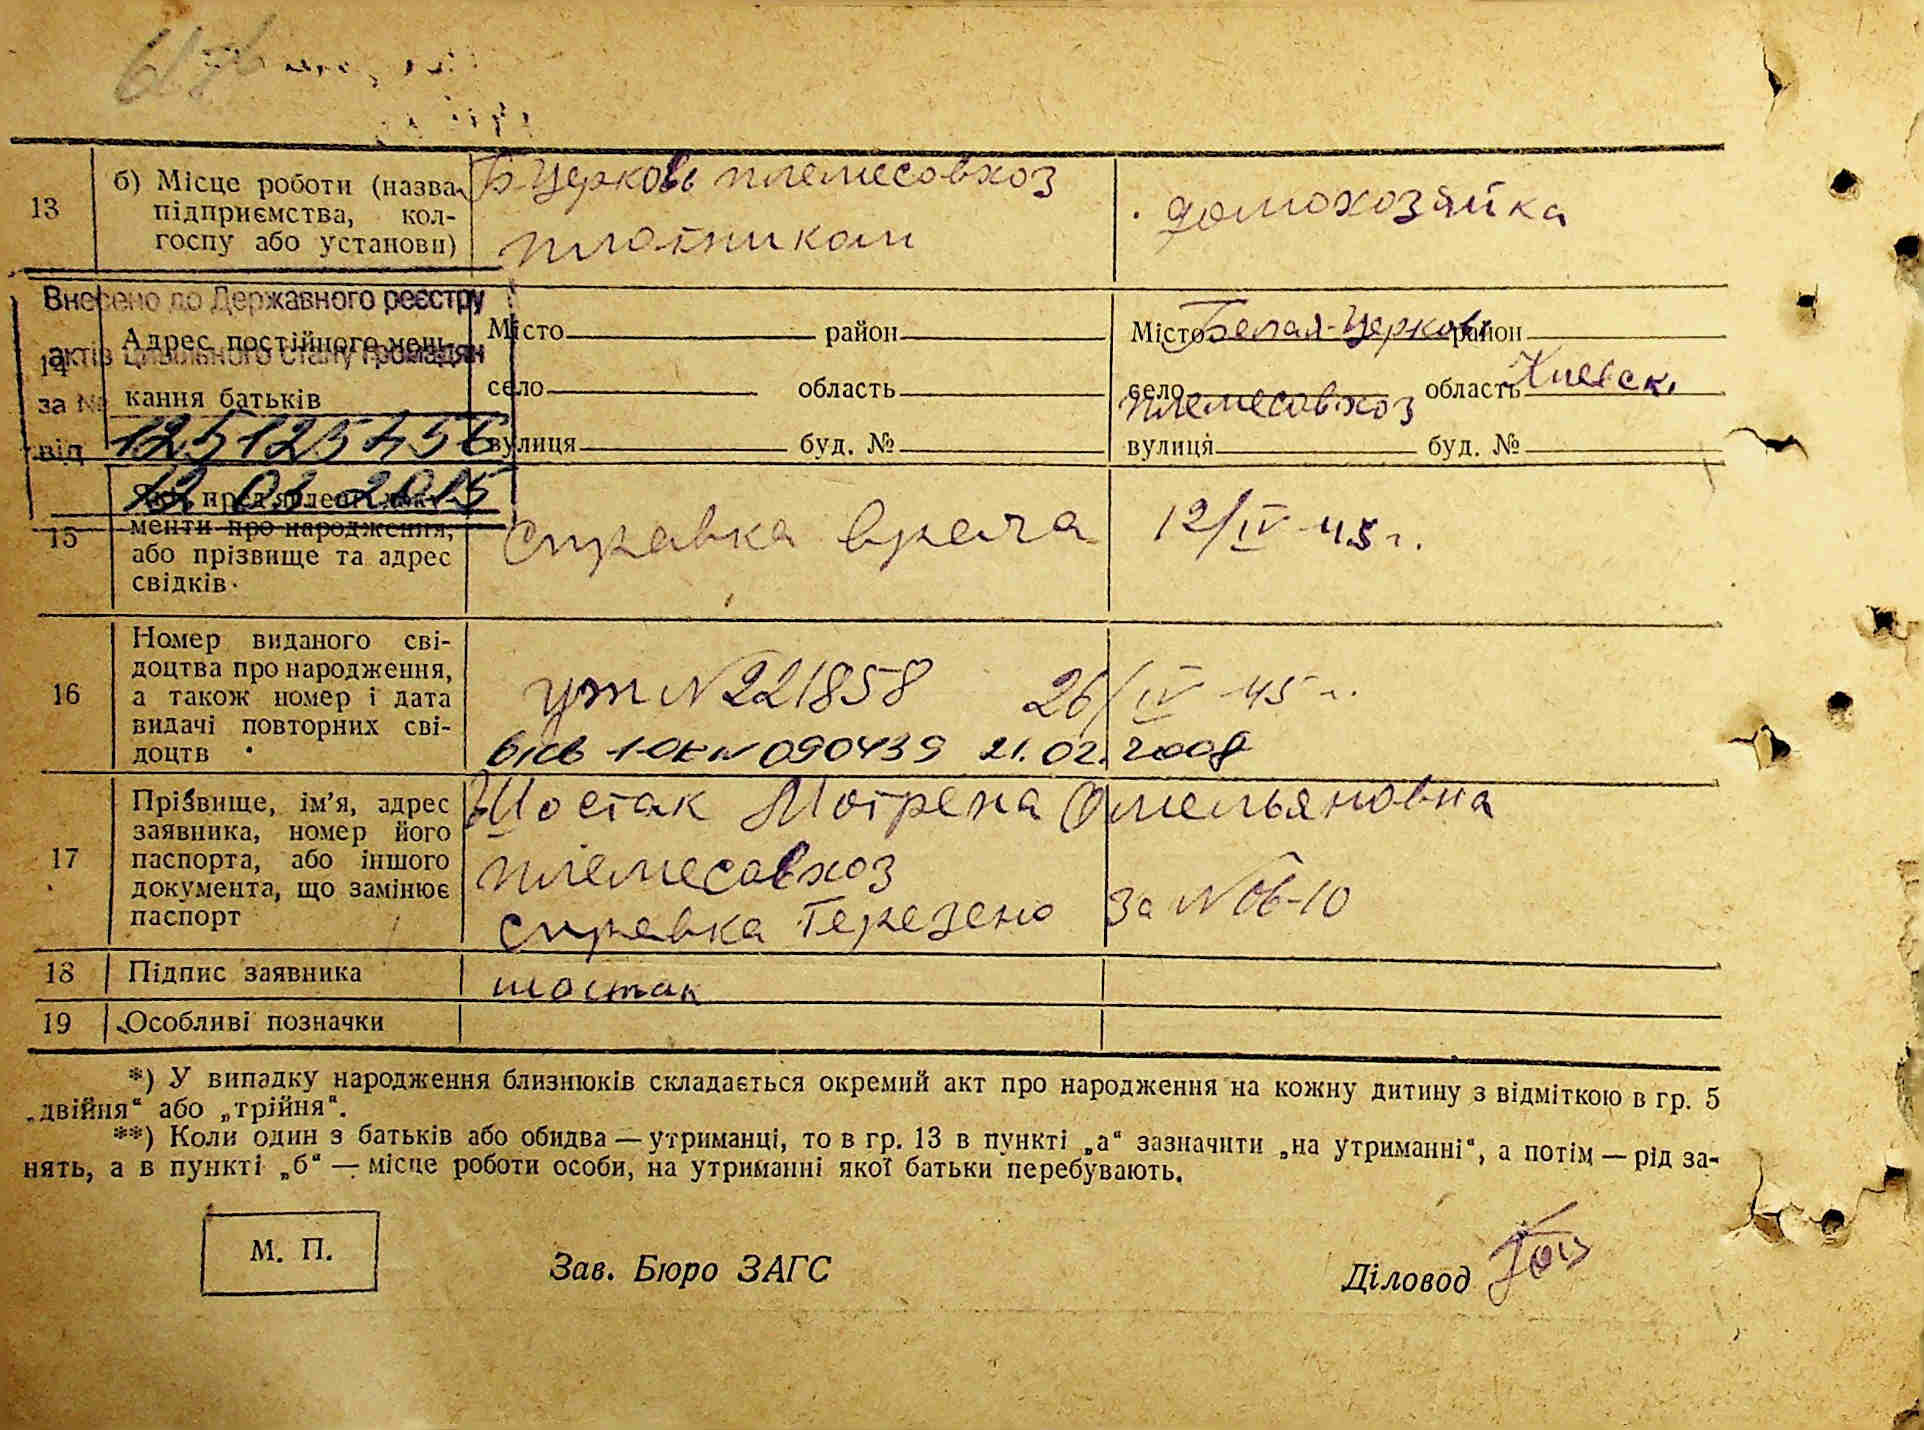 13
б) Місце роботи (назва
підприємства, кол-
госпу або установи)
Б Церковь племесовхоз
плотником
домохозяйка
Внесено до Державного реєстру
актів цивільного стану громадян
за №
125125456
від
12 01 2015
14
Адрес постійного меш-
кання батьків
Місто район
село область
вулиця буд. №
Місто Белая-Церковь район
село племесовхоз область Киевск.
вулиця буд. №
15
Які пред'явлені доку-
менти про народження,
або прізвище та адрес
свідків
справка врача 12/IV-45 г.
16
Номер виданого сві-
доцтва про народження,
а також номер і дата
видачі повторних сві-
доцтв
№221858 26/IV-45 г.
090439 21.02.2008
17
Прізвище, ім'я, адрес
заявника, номер його
паспорта, або іншого
документа, що замінює
паспорт
Шостак Мотрена Омельяновна
племесовхоз
справка Терезено за №06-10
18
Підпис заявника
шостак
19
Особливі позначки
*) У випадку народження близнюків складається окремий акт про народження на кожну дитину з відміткою в гр. 5
„двійня“ або „трійня“.
**) Коли один з батьків або обидва — утриманці, то в гр. 13 в пункті „а“ зазначити „на утриманні“, а потім — рід за-
нять, а в пункті „б“ — місце роботи особи, на утриманні якої батьки перебувають.
М. П.
Зав. Бюро ЗАГС
Діловод